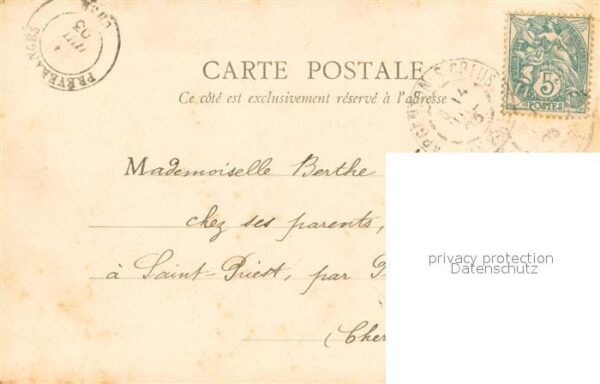 PRÉVERANGES
CHER
03
CARTE POSTALE
Ce côté est exclusivement réservé à l'adresse
5c
POSTES
Mademoiselle Berthe
chez ses parents,
à Saint-Priest, par P
(Cher
privacy protection
Datenschutz